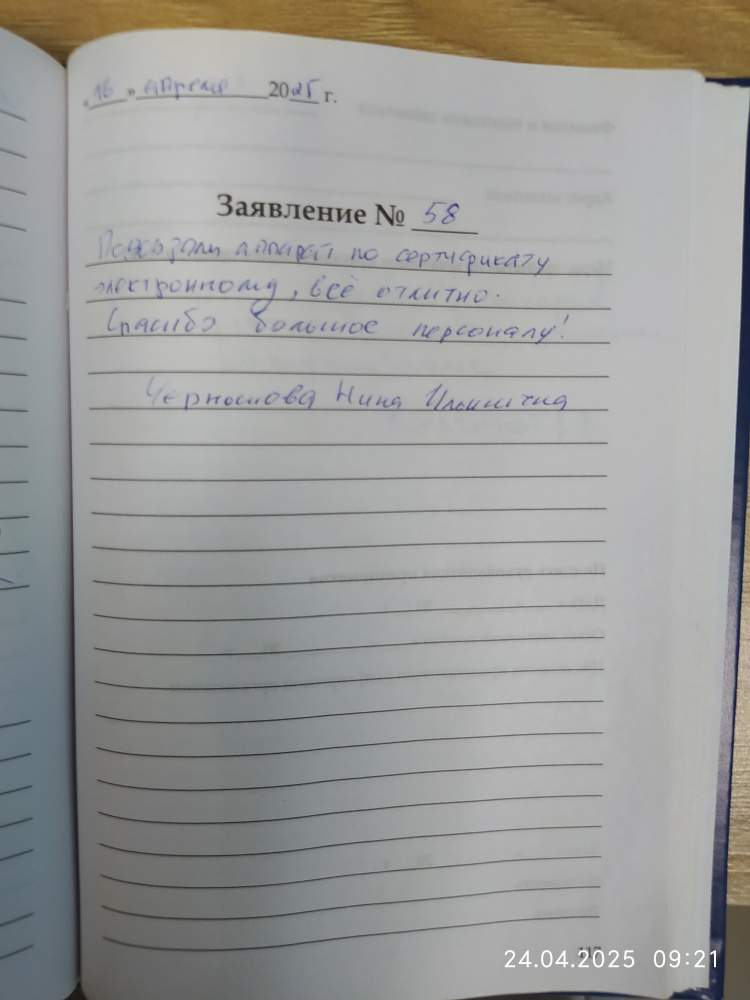 «16» апреля 2025 г.
Заявление № 58
Подобрали аппарат по сертификату
электронному, всё отлично.
Спасибо большое персоналу!
Нина Ильинична
117
24.04.2025 09:21